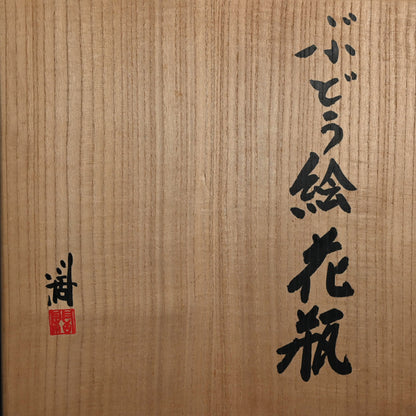 ぶどう絵花瓶